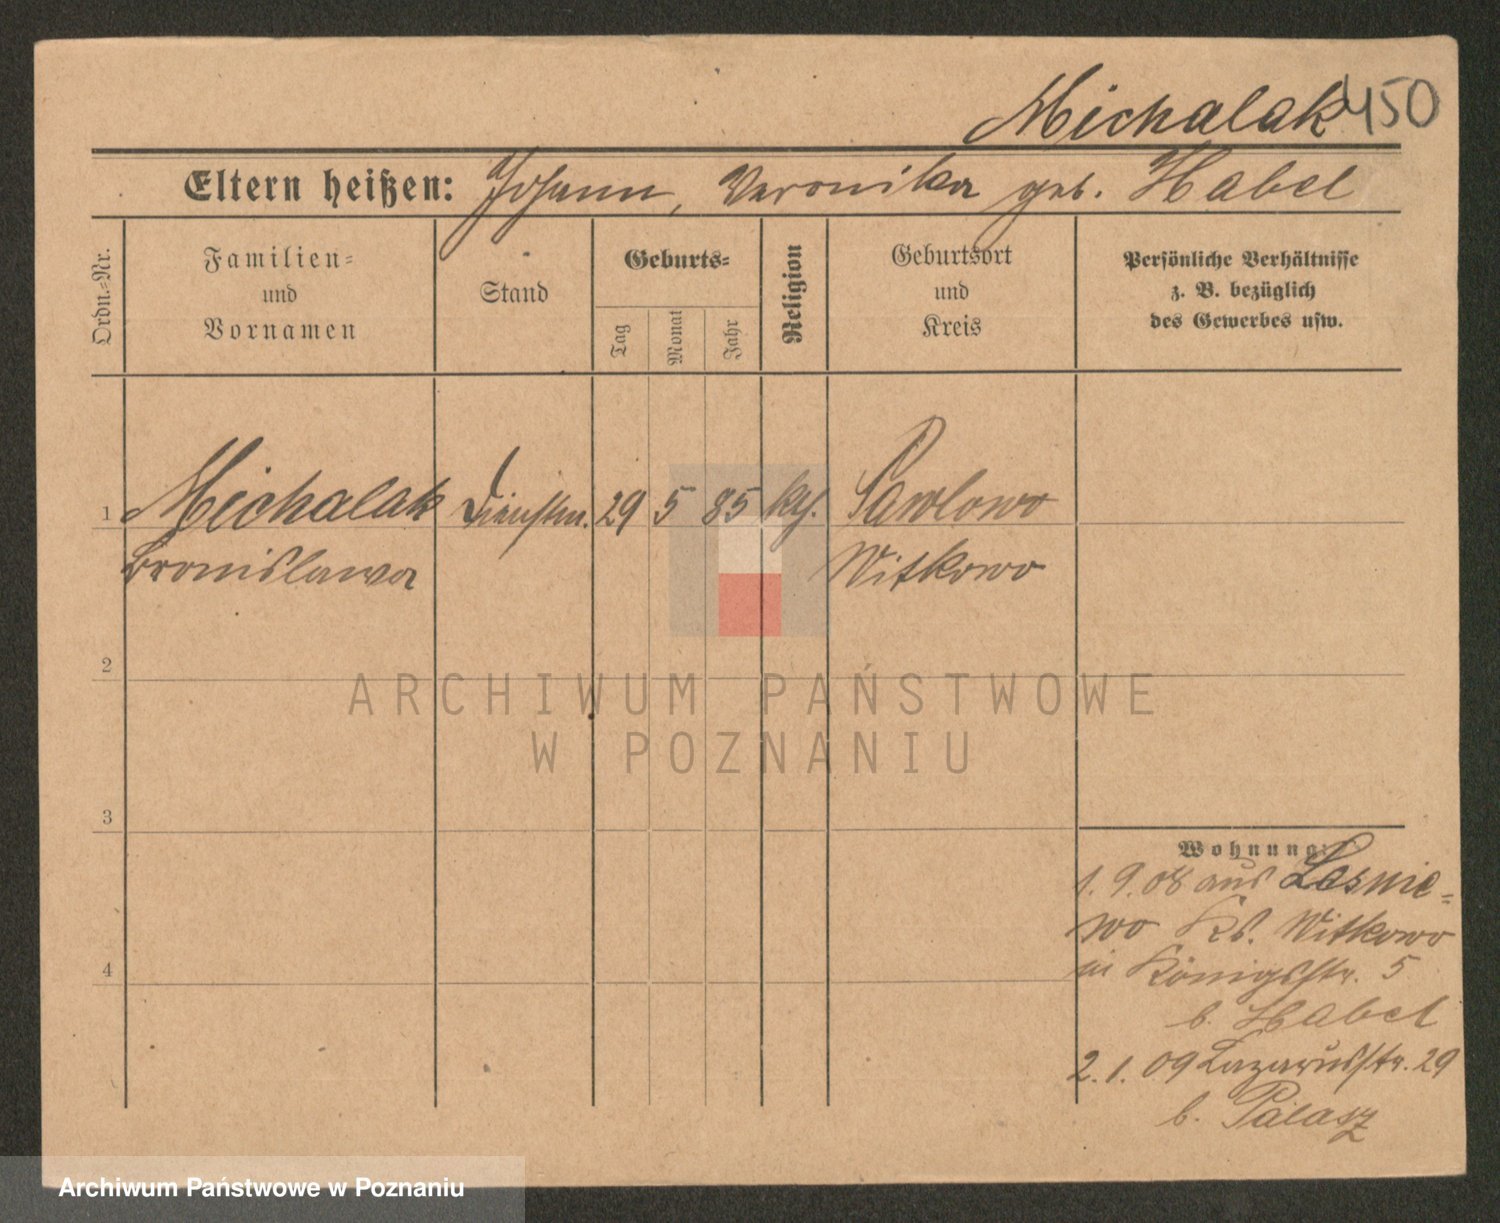 Michalak 450
Eltern heißen: Johann, Veronika geb. Habel
Ordn.-Nr.
Familien-
und
Vornamen
Stand
Geburts-
Tag
Monat
Jahr
Religion
Geburtsort
und
Kreis
Persönliche Verhältnisse
z. B. bezüglich
des Gewerbes usw.
1 Michalak Dienstm. 29 5 85 kth. Pawlowo
Bronislawa Witkowo
2
ARCHIWUM PAŃSTWOWE
W POZNANIU
3
Wohnung:
1. 9. 08 aus Lesnie-
wo Kr. Witkowo
in Königsstr. 5
b. Habel
4
2. 1. 09 Lazarusstr. 29
b. Palasz
Archiwum Państwowe w Poznaniu